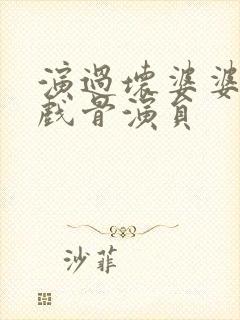 演過壞婆婆
戲骨演員
沙菲